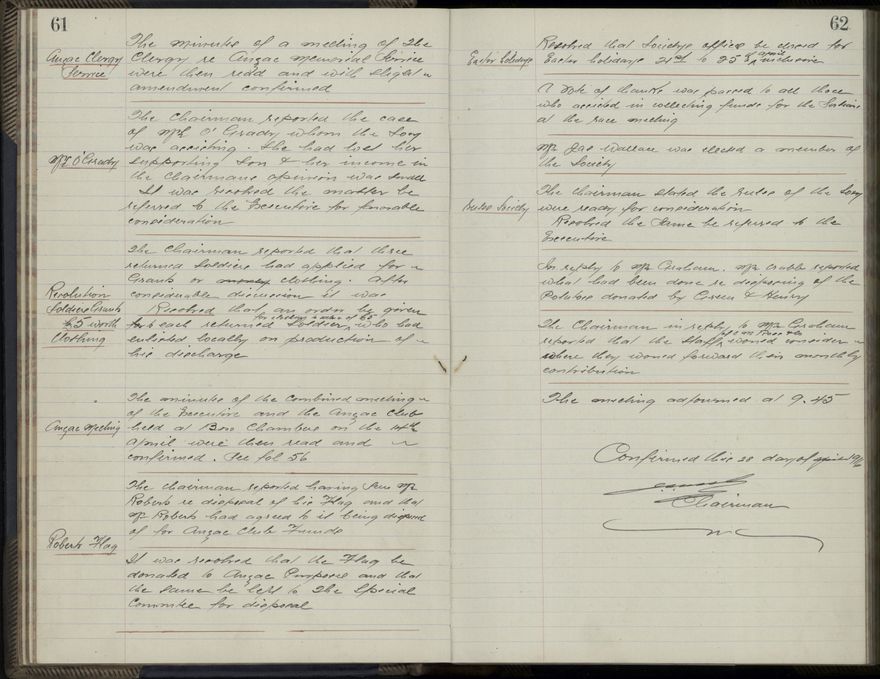 61
The minutes of a meeting of the
Anzac Clergy Service
Clergy re Anzac Memorial Service
were then read and with slight
amendment confirmed
The Chairman reported the case
of Mrs O'Grady whom the Socy
was assisting. She had lost her
Mrs O'Grady
supporting Son & her income in
the Chairmans opinion was small
It was resolved the matter be
referred to the Executive for favorable
consideration
The Chairman reported that three
returned Soldiers had applied for
Grants or money clothing. After
Resolution
considerable discussion it was
Soldiers Grants
Resolved that an order be given
for clothing to value of £5
£5 worth
to each returned Soldier, who had
Clothing
enlisted locally on production of
his discharge
The minutes of the combined meeting
of the Executive and the Anzac Club
Anzac Meeting
held at Boro Chambers on the 14th
April were then read and
confirmed. See fol 56
The Chairman reported having seen Mr
Roberts re disposal of his Flag and that
Mr Roberts had agreed to it being disposed
of for Anzac Club Funds
Roberts Flag
It was resolved that the Flag be
donated to Anzac Purposes and that
the same be left to the Special
Committee for disposal
62
Resolved that Societys office be closed for
Easter Holidays
Easter holidays 21st to 25th April inclusive
A Vote of thanks was passed to all those
who assisted in collecting funds for the
at the race meeting
Mr Jas Wallace was elected a member of
the Society
The Chairman stated the Rules of the Socy
Rules Society
were ready for consideration
Resolved the same be referred to the
Executive
In reply to Mr Graham. Mr reported
what had been done re disposing of the
Potatoes donated by Green & Henry
The Chairman in reply to Mr Graham
reported that the Staffs would consider
where they would forward their monthly
contribution
The meeting adjourned at 9.45
Confirmed this 28 day of April
Chairman